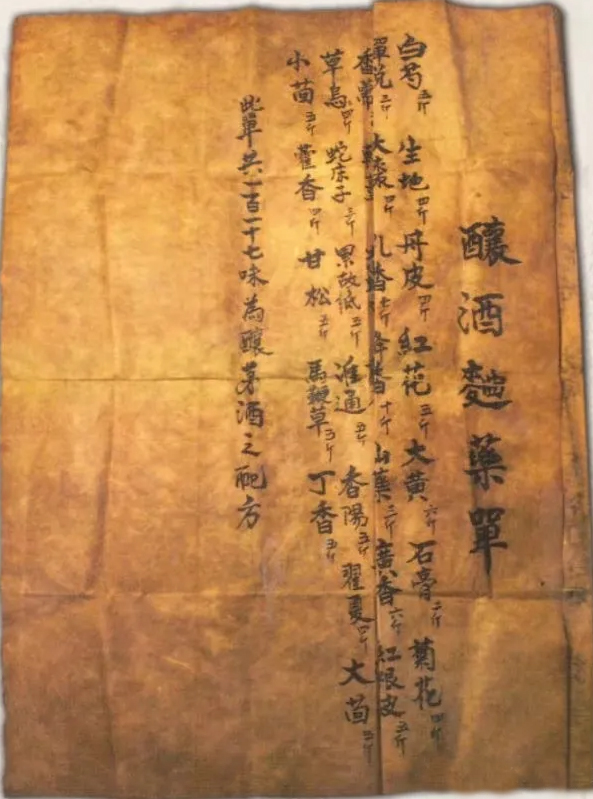 釀酒麯藥單
白芍五斤 生地四斤 丹皮四斤 紅花三斤 大黄六斤 石膏二斤 菊花四斤
單 二斤 大 四斤 斤 十斤 山藥三斤 廣香六斤 紅娘皮五斤
香
草烏四斤 蛇床子三斤 果故低三斤 淮通五斤 香陽五斤 翟夏四斤 大茴三斤
小茴五斤 藿香四斤 甘松五斤 馬鞭草 斤 丁香五斤
此單共一百一十七味為釀茅酒之配方